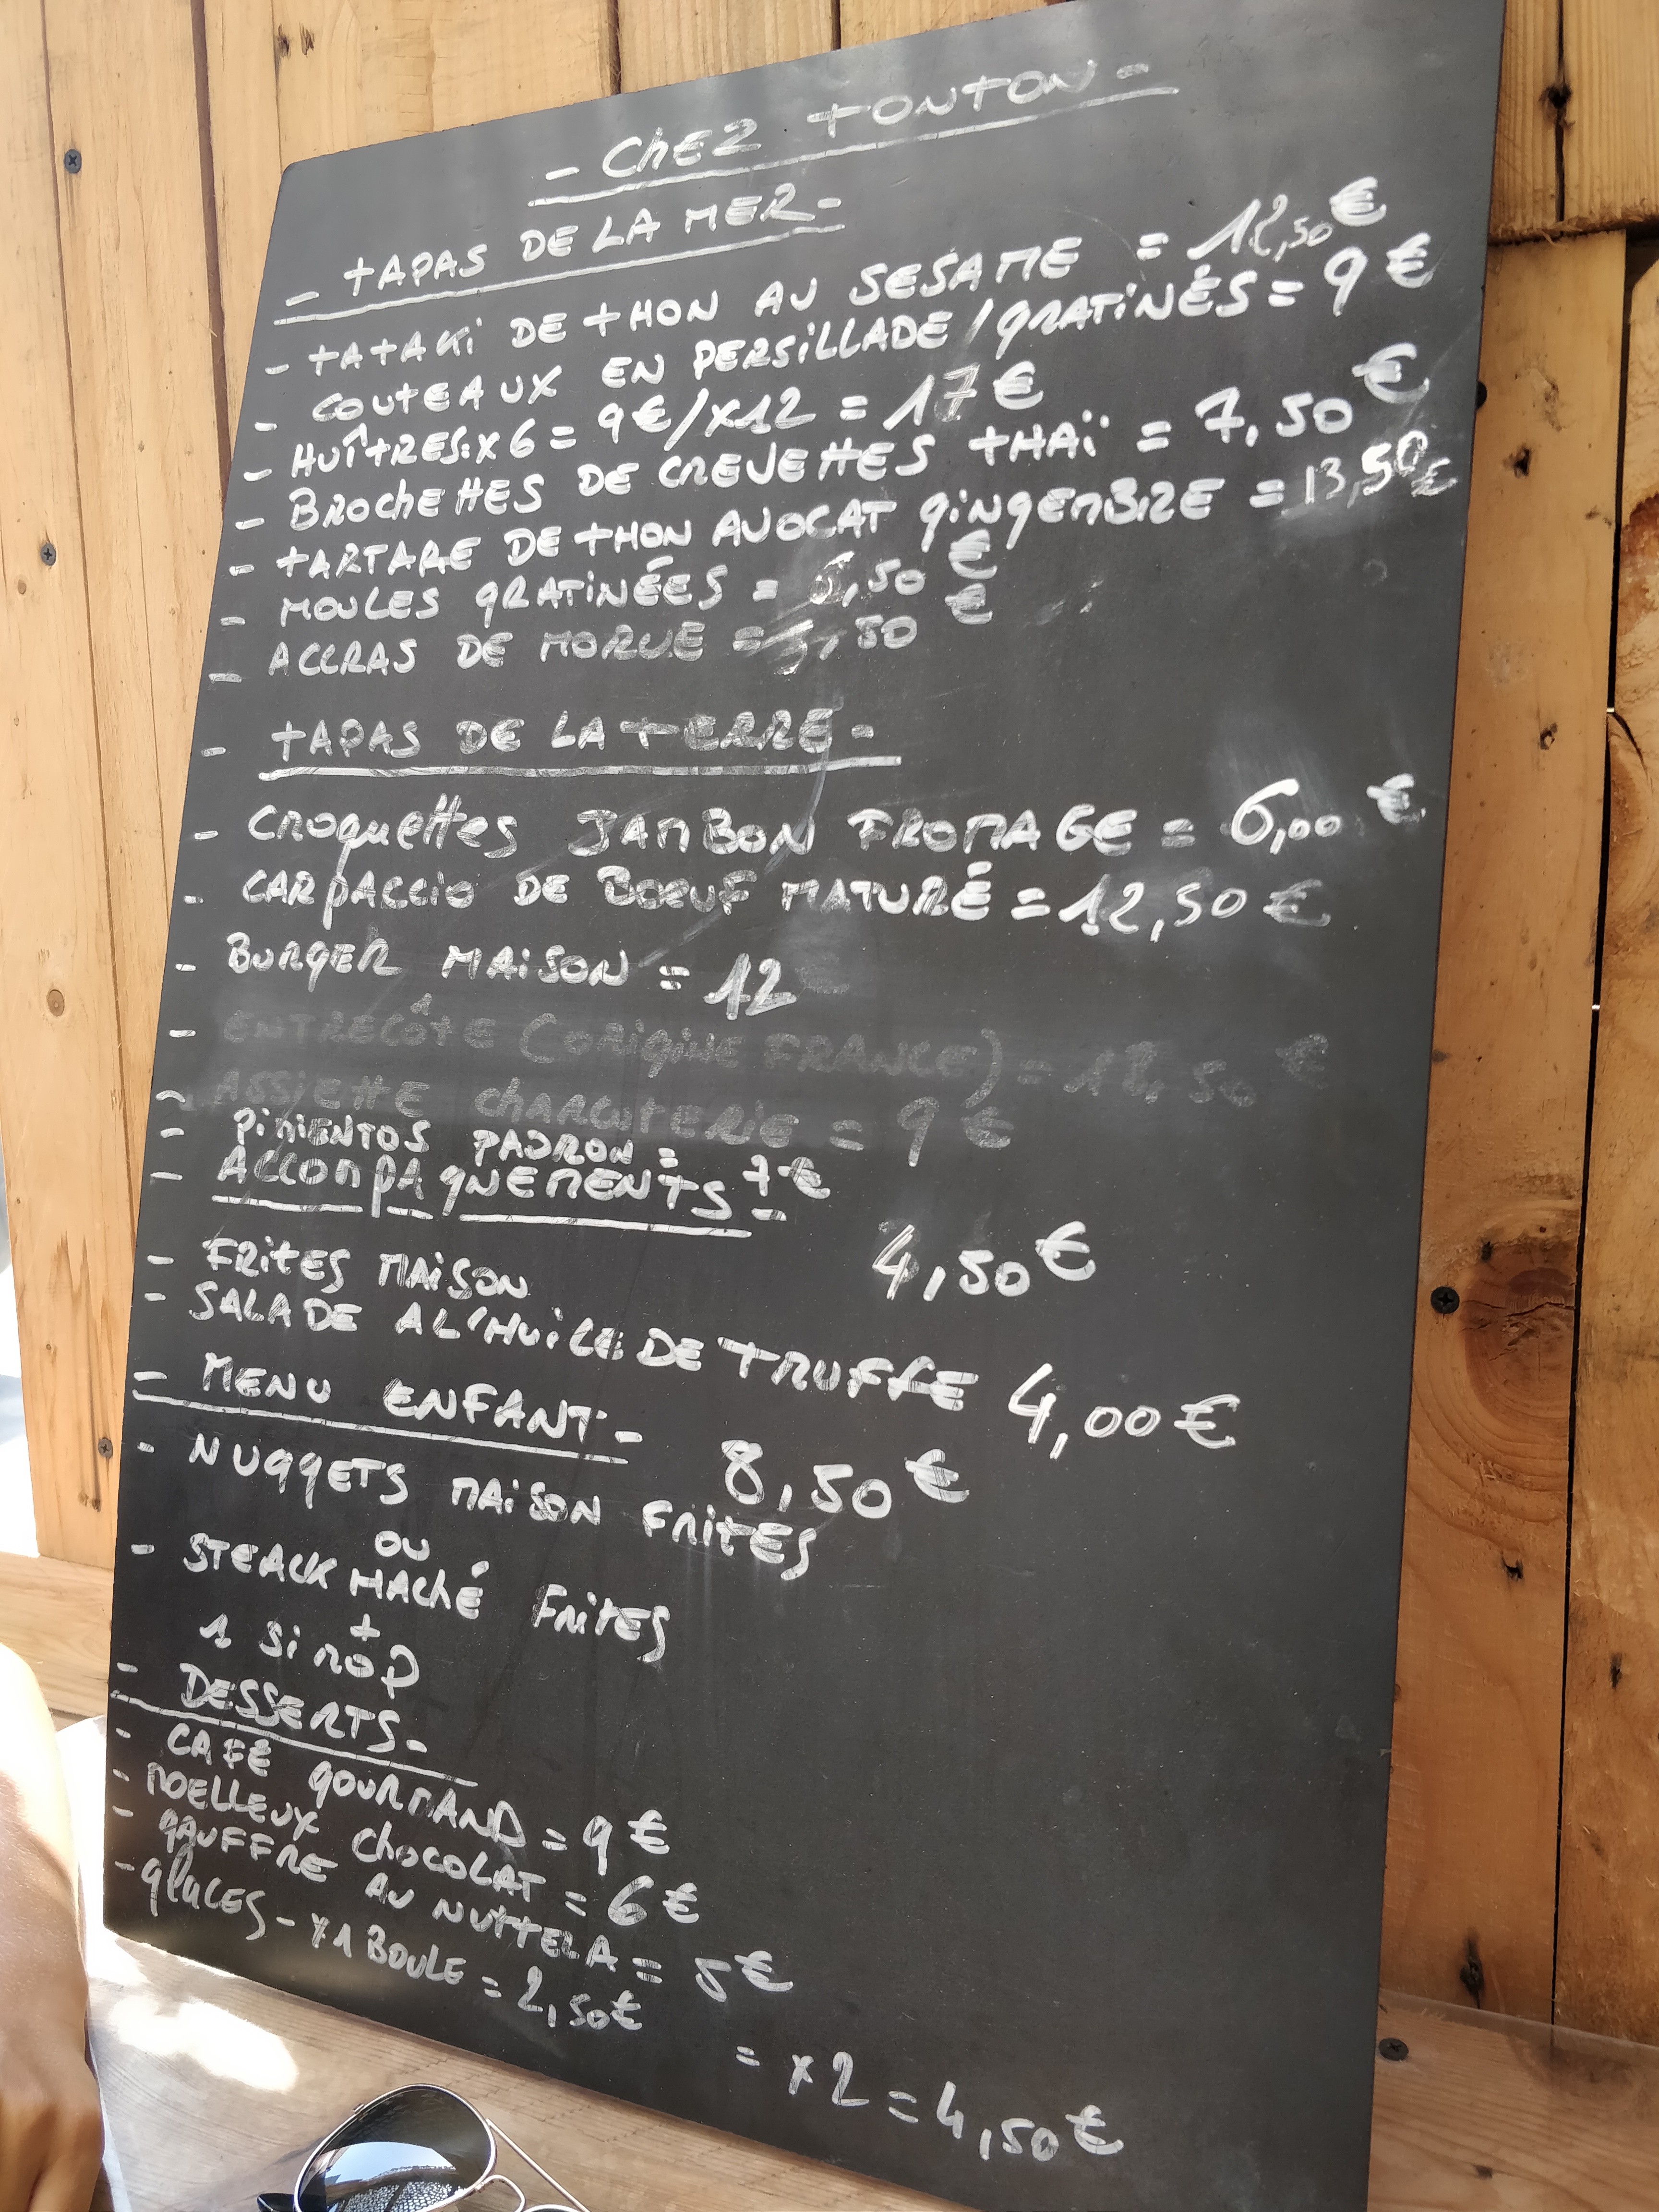 - CHEZ TONTON -
- TAPAS DE LA MER -
- TATAKI DE THON AU SESAME = 12,50 €
- COUTEAUX EN PERSILLADE / GRATINÉS = 9 €
- HUÎTRES: X 6 = 9 € / X12 = 17 €
- BROCHETTES DE CREVETTES THAÏ = 7,50 €
- TARTARE DE THON AVOCAT GINGEMBRE = 13,50 €
- MOULES GRATINÉES = ,50 €
- ACCRAS DE MORUE = ,50 €
- TAPAS DE LA TERRE -
- CROQUETTES JAMBON FROMAGE = 6,00 €
- CARPACCIO DE BOEUF MATURÉ = 12,50 €
- BURGER MAISON = 12
- ENTRECÔTE (ORIGINE FRANCE) = €
- ASSIETTE CHARCUTERIE = 9 €
- PIMIENTOS PADRON = 7 €
- ACCOMPAGNEMENTS -
- FRITES MAISON 4,50 €
- SALADE A L'HUILE DE TRUFFE 4,00 €
- MENU ENFANT - 8,50 €
- NUGGETS MAISON FRITES
OU
- STEACK HACHÉ FRITES
+
1 SIROP
- DESSERTS -
- CAFÉ GOURMAND = 9 €
- MOELLEUX CHOCOLAT = 6 €
- GAUFFRE AU NUTTELA = 5 €
- GLACES - X 1 BOULE = 2,50 €
= X 2 = 4,50 €